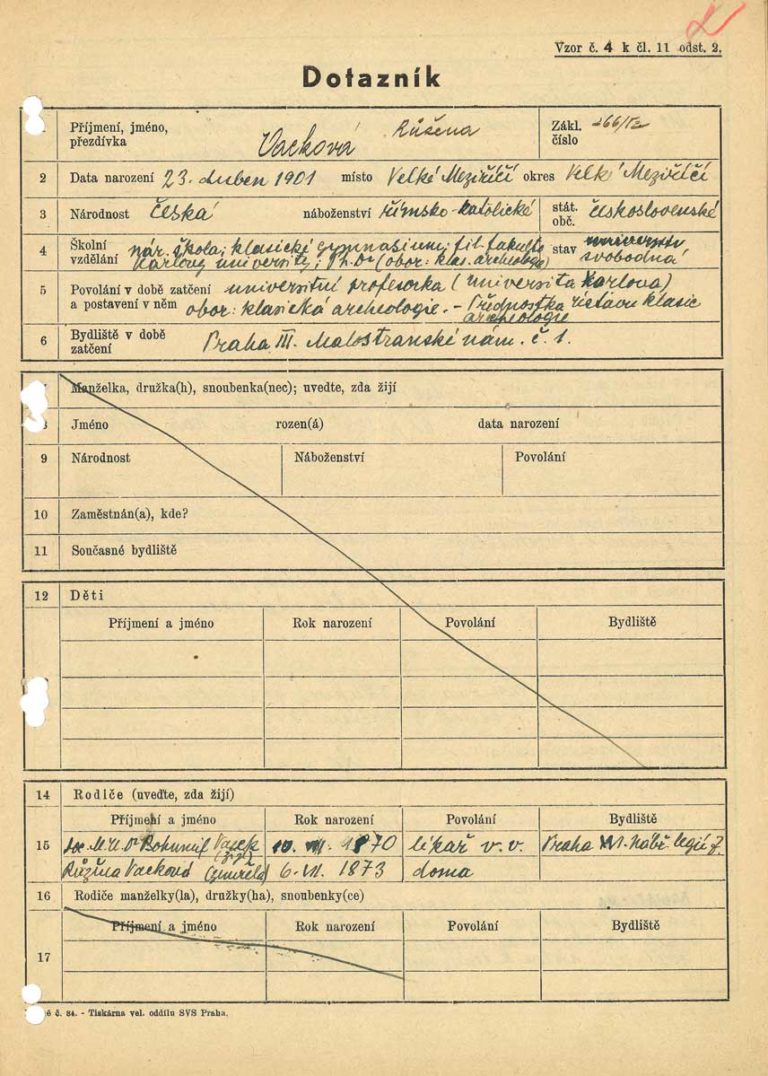 Vzor č. 4 k čl. 11 odst. 2.
Dotazník
Příjmení, jméno, přezdívka Vacková Růžena Zákl. číslo 266/52
2 Data narození 23. duben 1901 místo Velké Meziříčí okres Velké Meziříčí
3 Národnost česká náboženství římsko-katolické stát. obč. československé
4 Školní vzdělání nár. škola; klasické gymnasium; fil. fakulta
Karlovy university; Ph.Dr (obor: klas. archeologie) stav svobodná
5 Povolání v době zatčení universitní profesorka (universita Karlova)
a postavení v něm obor: klasická archeologie. - Přednostka ústavu klasic
archeologie
6 Bydliště v době zatčení Praha III. Malostranské nám. č. 1.
Manželka, družka(h), snoubenka(nec); uveďte, zda žijí
Jméno rozen(á) data narození
9 Národnost Náboženství Povolání
10 Zaměstnán(a), kde?
11 Současné bydliště
12 Děti
Příjmení a jméno Rok narození Povolání Bydliště
14 Rodiče (uveďte, zda žijí)
Příjmení a jméno Rok narození Povolání Bydliště
15 Bohumil Vacek 1870 lékař v.v. Praha nábř. legií
Růžena Vacková (zemřela) 6. VII. 1873 doma
16 Rodiče manželky(la), družky(ha), snoubenky(ce)
Příjmení a jméno Rok narození Povolání Bydliště
17
č. 84. - Tiskárna vel. oddílu SVS Praha.